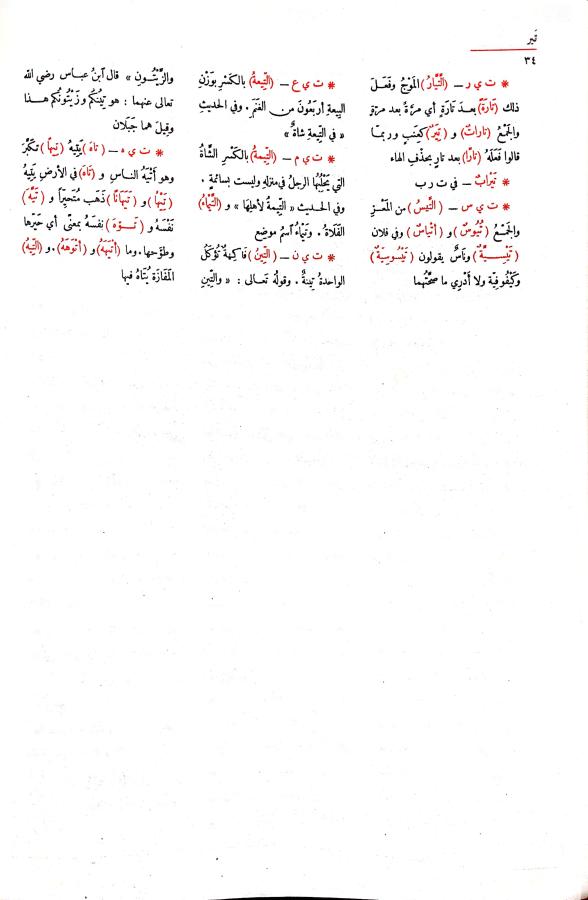 تير
٣٤
* ت ي ر – (التَّيَّارُ) المَوْجُ وفَعَلَ
ذلك (تَارَةً) بعدَ تَارَةٍ أي مرَّةً بعد مرَّةٍ
والجَمْعُ (تَاراتٌ) و (تِيَرٌ) كعِنَبٍ وربما
قالوا فَعَلَهُ (تارًا) بعد تارٍ بحذْفِ الهاء
* تَيْرابٌ – في ت ر ب
* ت ي س – (التَّيْسُ) من المَعْزِ
والجَمْعُ (تُيُوسٌ) و (أتْيَاسٌ) وفي فلان
(تَيْسِيَّةٌ) وناسٌ يقولون (تَيْسُوسِيَّةٌ)
وكَيْفُوفِيَّة ولا أَدْرِي ما صحَّتُهما
* ت ي ع – (التِّيعةُ) بالكَسْرِ بوَزْنِ
البِيعةِ أربَعُونَ من الغَنَمِ . وفي الحديث
« في التِّيعةِ شاةٌ »
* ت ي م – (التِّيمةُ) بالكَسْرِ الشَّاةُ
التي يَحْلُبُها الرجلُ في منزله وليست بسائمةٍ .
وفي الحديث « التِّيمةُ لأهلِها » و (التَّيْماءُ)
الفَلاةُ . وتَيْماءُ اسمُ موضعٍ
* ت ي ن – (التِّينُ) فاكهةٌ تُؤْكَلُ
الواحدةُ تِينةٌ . وقولُه تَعالى : « والتِّينِ
والزَّيْتُونِ » قال آبنُ عباس رضي الله
تعالى عنهما : هو تِينُكُم وزَيْتُونُكم هذا
وقيل هما جَبَلان
* ت ي ه – (تَاهَ) يَتِيهُ (تِيهاً) تكبَّرَ
وهو أَتْيَهُ الناسِ و (تَاهَ) في الأرضِ يَتِيهُ
(تَيْهاً) و (تَيَهَاناً) ذَهَب مُتَحيِّراً و (تَيَّهَ)
نَفْسَهُ و (تَوَّهَ) نفسَهُ بمعنًى أي حَيَّرَها
وطوَّحها. وما (أتْيَهَهُ) و (أتْوَهَهُ). و (التِّيهُ)
المَفازَةُ يُتَاهُ فيها